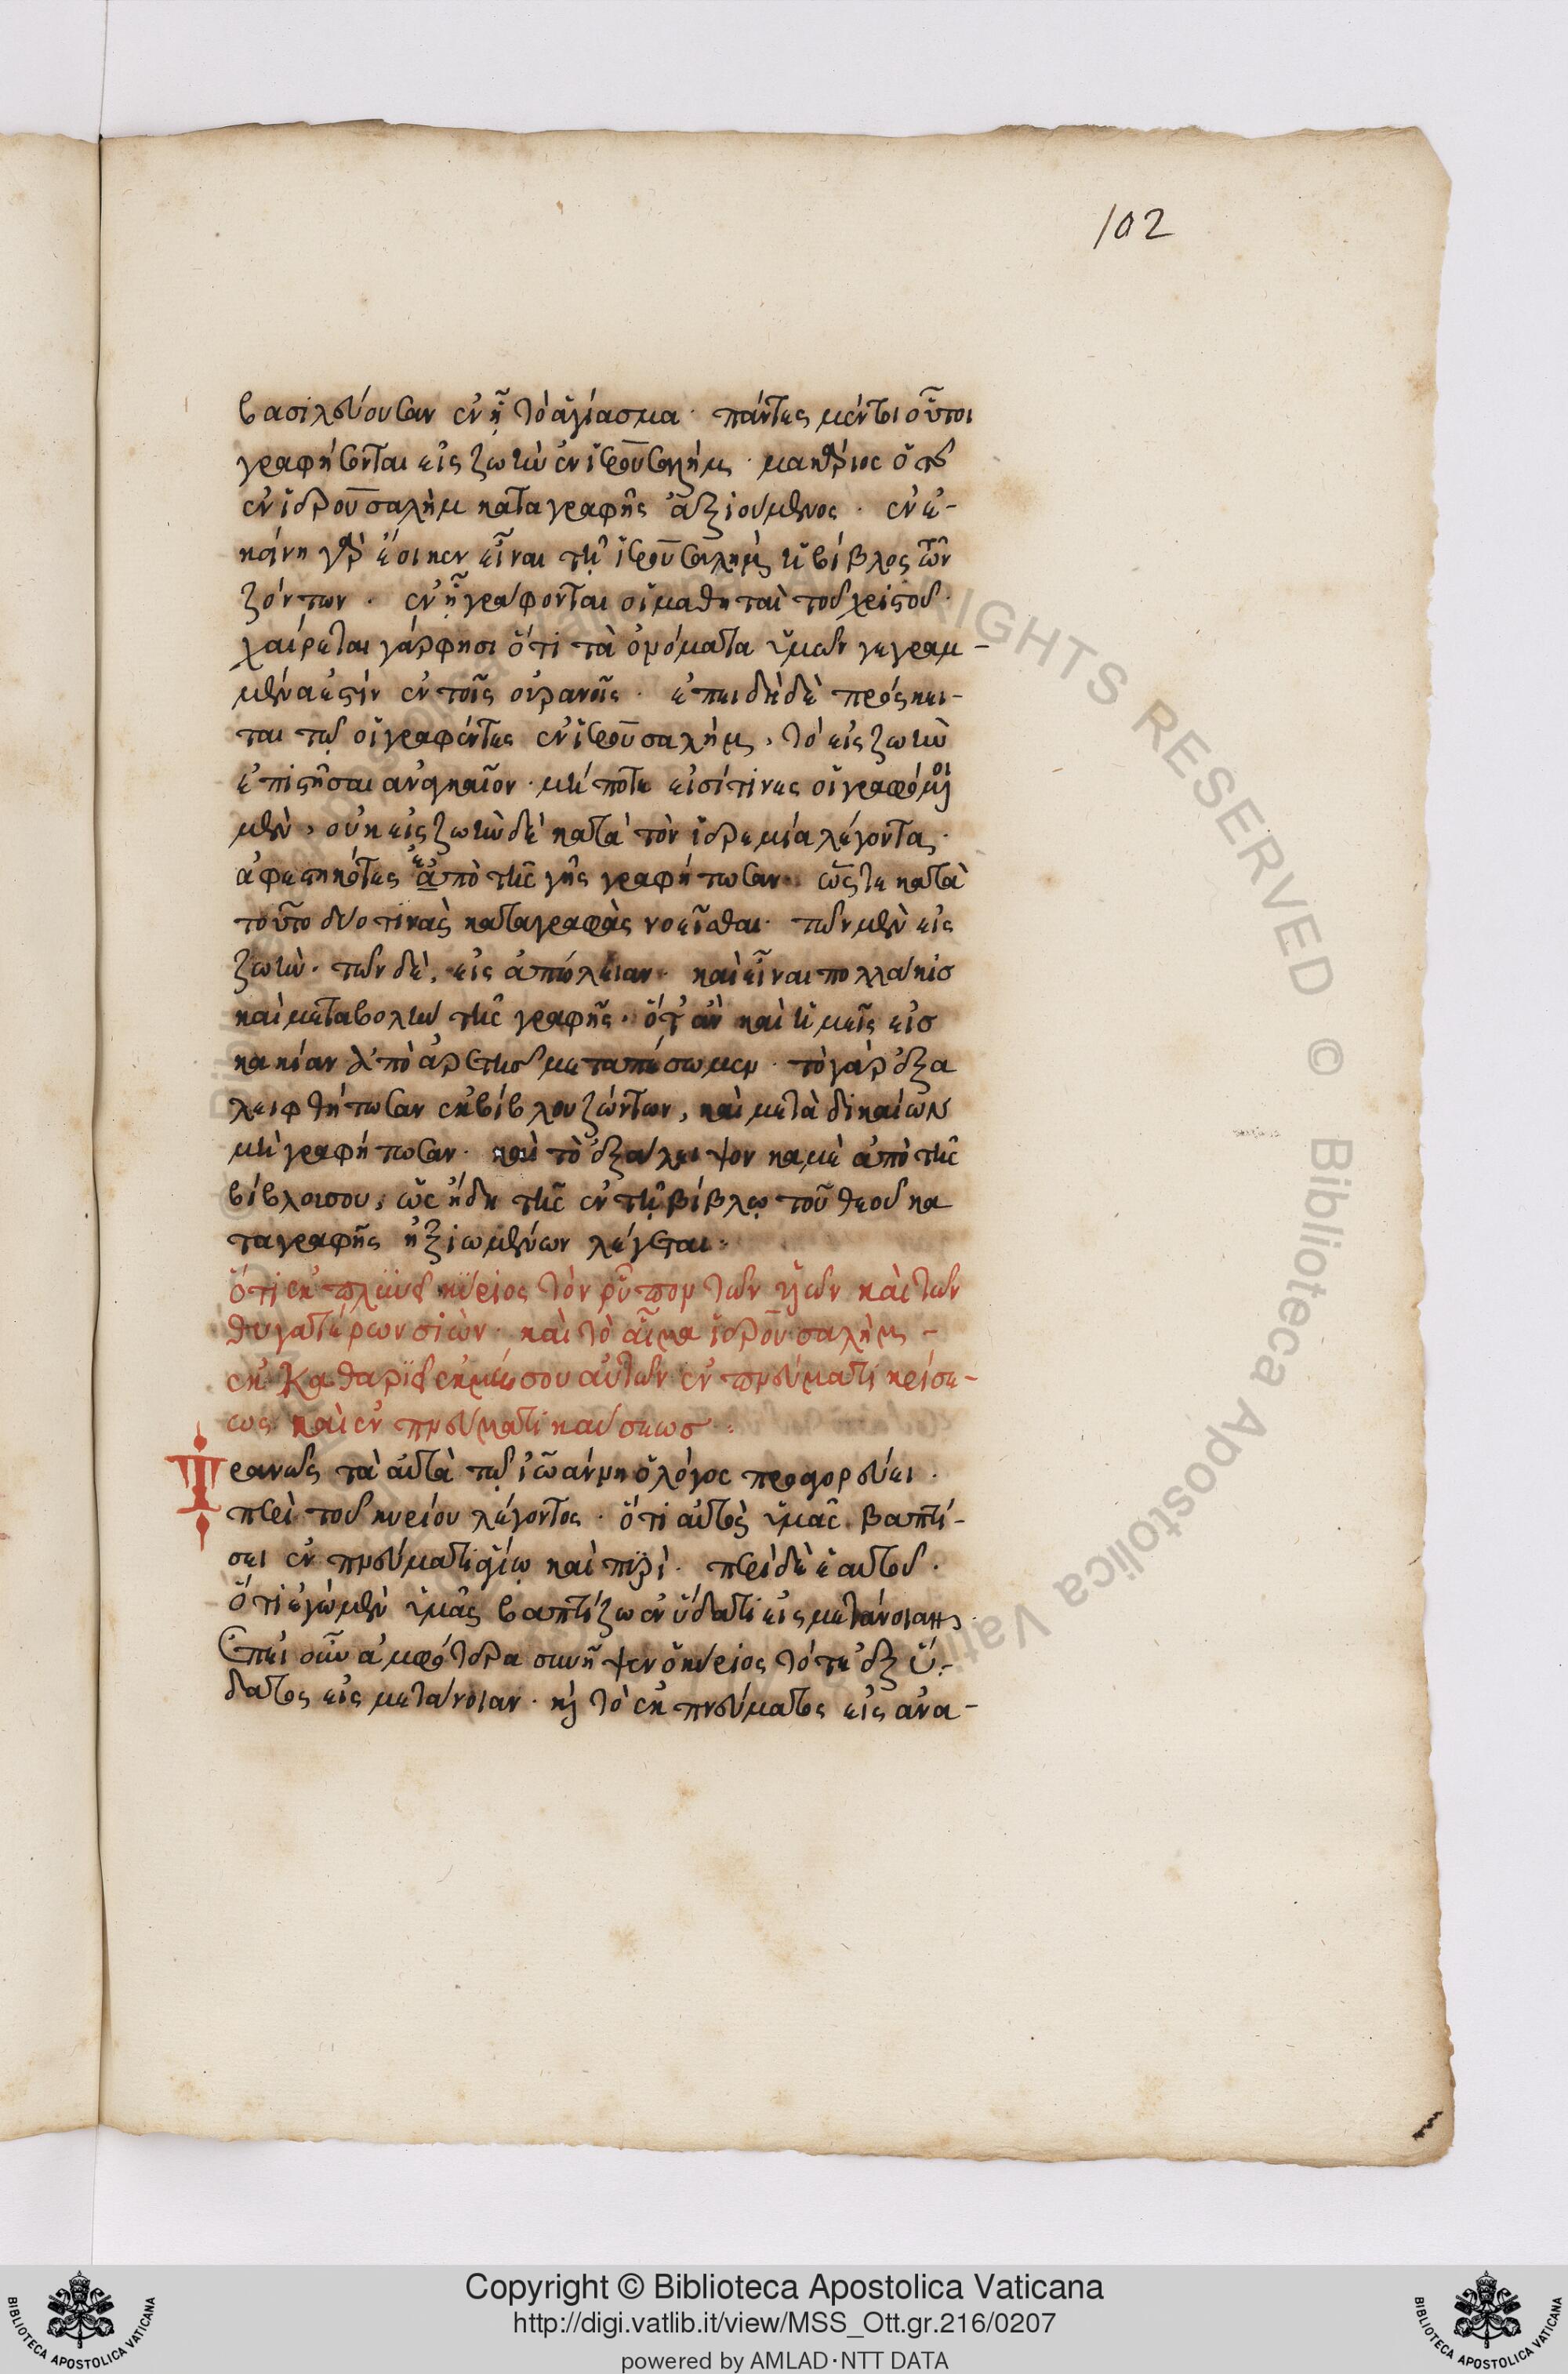 102
βασιλεύουσαν ἐν ᾗ τὸ ἁγίασμα· πάντες μέντοι οὗτοι
γραφήσονται εἰς ζωὴν ἐν ἱερουσαλήμ· μακάριος ὁ τῆς
ἐν ἱερουσαλὴμ καταγραφῆς ἀξιούμενος· ἐν ἐ-
κείνη γὰρ ἔοικεν εἶναι τῇ ἱερουσαλὴμ ἡ βίβλος τῶν
ζόντων· ἐν ᾗ γράφονται οἱ μαθηταὶ τοῦ χριστοῦ·
χαίρεται γάρ φησι ὅτι τὰ ὀνόματα ὑμῶν γεγραμ-
μένα ἐστὶν ἐν τοῖς οὐρανοῖς· ἐπειδὴ δὲ πρόσκει-
ται τῷ οἱ γραφέντες ἐν ἱερουσαλήμ, τὸ εἰς ζωὴν
ἐπιστῆσαι ἀναγκαῖον· μήποτε εἰσί τινες οἱ γραφόμενοι
μὲν, οὐκ εἰς ζωὴν δὲ κατὰ τὸν ἱερεμία λέγοντα·
ἀφεστηκότες ἀπὸ τῆς γῆς γραφήτωσαν· ὥστε κατὰ
τοῦτο δύο τινὰς καταγραφὰς νοεῖσθαι· τῶν μὲν εἰς
ζωὴν· τῶν δὲ, εἰς ἀπώλειαν· καὶ εἶναι πολλάκις
καὶ μεταβολὴν τῆς γραφῆς· ὅτ' ἂν καὶ ἡμεῖς εἰς
κακίαν ἀπὸ ἀρετῆς μεταπέσωμεν· τὸ γὰρ ἐξα
λειφθήτωσαν ἐκ βίβλου ζώντων, καὶ μετὰ δικαίων
μὴ γραφήτωσαν· καὶ τὸ ἐξάλειψον καμὲ ἀπὸ τῆς
βίβλοισου, ὡς ἤδη τῆς ἐν τῇ βίβλῳ τοῦ θεοῦ κα
ταγραφῆς ἠξιωμένων λέγεται·
ὅτι ἐκπλυνεῖ κύριος τὸν ῥύπον τῶν υἱῶν καὶ τῶν
θυγατέρων σιών· καὶ τὸ αἷμα ἱερουσαλὴμ -
ἐκκαθαρεῖ ἐκ μέσου αὐτῶν ἐν πνεύματι κρίσε-
ως καὶ ἐν πνεύματι καύσεως·
Τρανῶς τὰ αὐτὰ τῷ ἰωάννη ὁ λόγος προαγορεύει·
περὶ τοῦ κυρίου λέγοντος· ὅτι αὐτὸς ὑμᾶς βαπτί-
σει ἐν πνεύματι ἁγίῳ καὶ πυρὶ· περὶ δὲ ἑαυτοῦ·
ὅτι ἐγὼ μὲν ὑμᾶς βαπτίζω ἐν ὕδατι εἰς μετάνοιαν·
Ἐπεὶ οὖν ἀμφότερα συνῆψεν ὁ κύριος τό τε ἐξ ὕ-
δατος εἰς μετάνοιαν· καὶ τὸ ἐκ πνεύματος εἰς ἀνα-
Copyright © Biblioteca Apostolica Vaticana
http://digi.vatlib.it/view/MSS_Ott.gr.216/0207
powered by AMLAD·NTT DATA